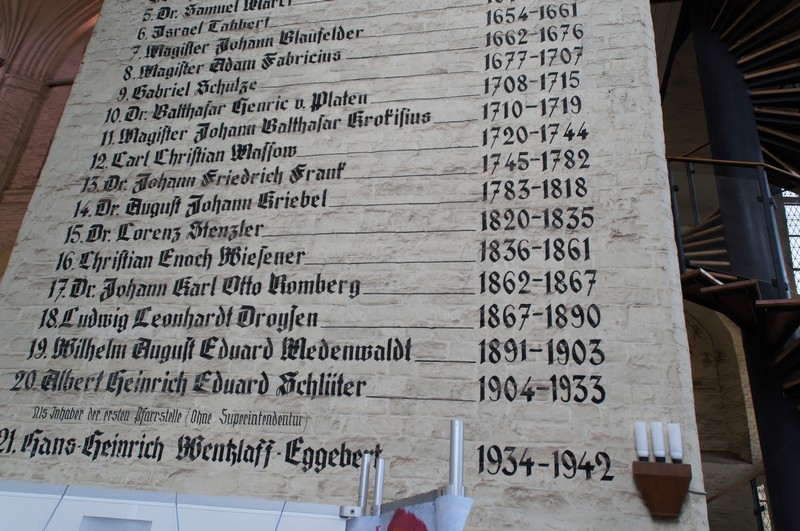 5. Dr. Samuel Marci
6. Israel Tabbert 1654-1661
7. Magister Johann Blaufelder 1662-1676
8. Magister Adam Fabricius 1677-1707
9. Gabriel Schulze 1708-1715
10. Dr. Balthasar Henric v. Platen 1710-1719
11. Magister Johann Balthasar Krokisius 1720-1744
12. Carl Christian Massow 1745-1782
13. Dr. Johann Friedrich Frank 1783-1818
14. Dr. August Johann Griebel 1820-1835
15. Dr. Lorenz Stenzler 1836-1861
16. Christian Enoch Wiesener 1862-1867
17. Dr. Johann Karl Otto Romberg 1867-1890
18. Ludwig Leonhardt Droysen 1891-1903
19. Wilhelm August Eduard Medenwaldt 1904-1933
20. Albert Heinrich Eduard Schlüter
Als Inhaber der ersten Pfarrstelle (Ohne Superintendentur)
21. Hans-Heinrich Wentzlaff-Eggebert 1934-1942